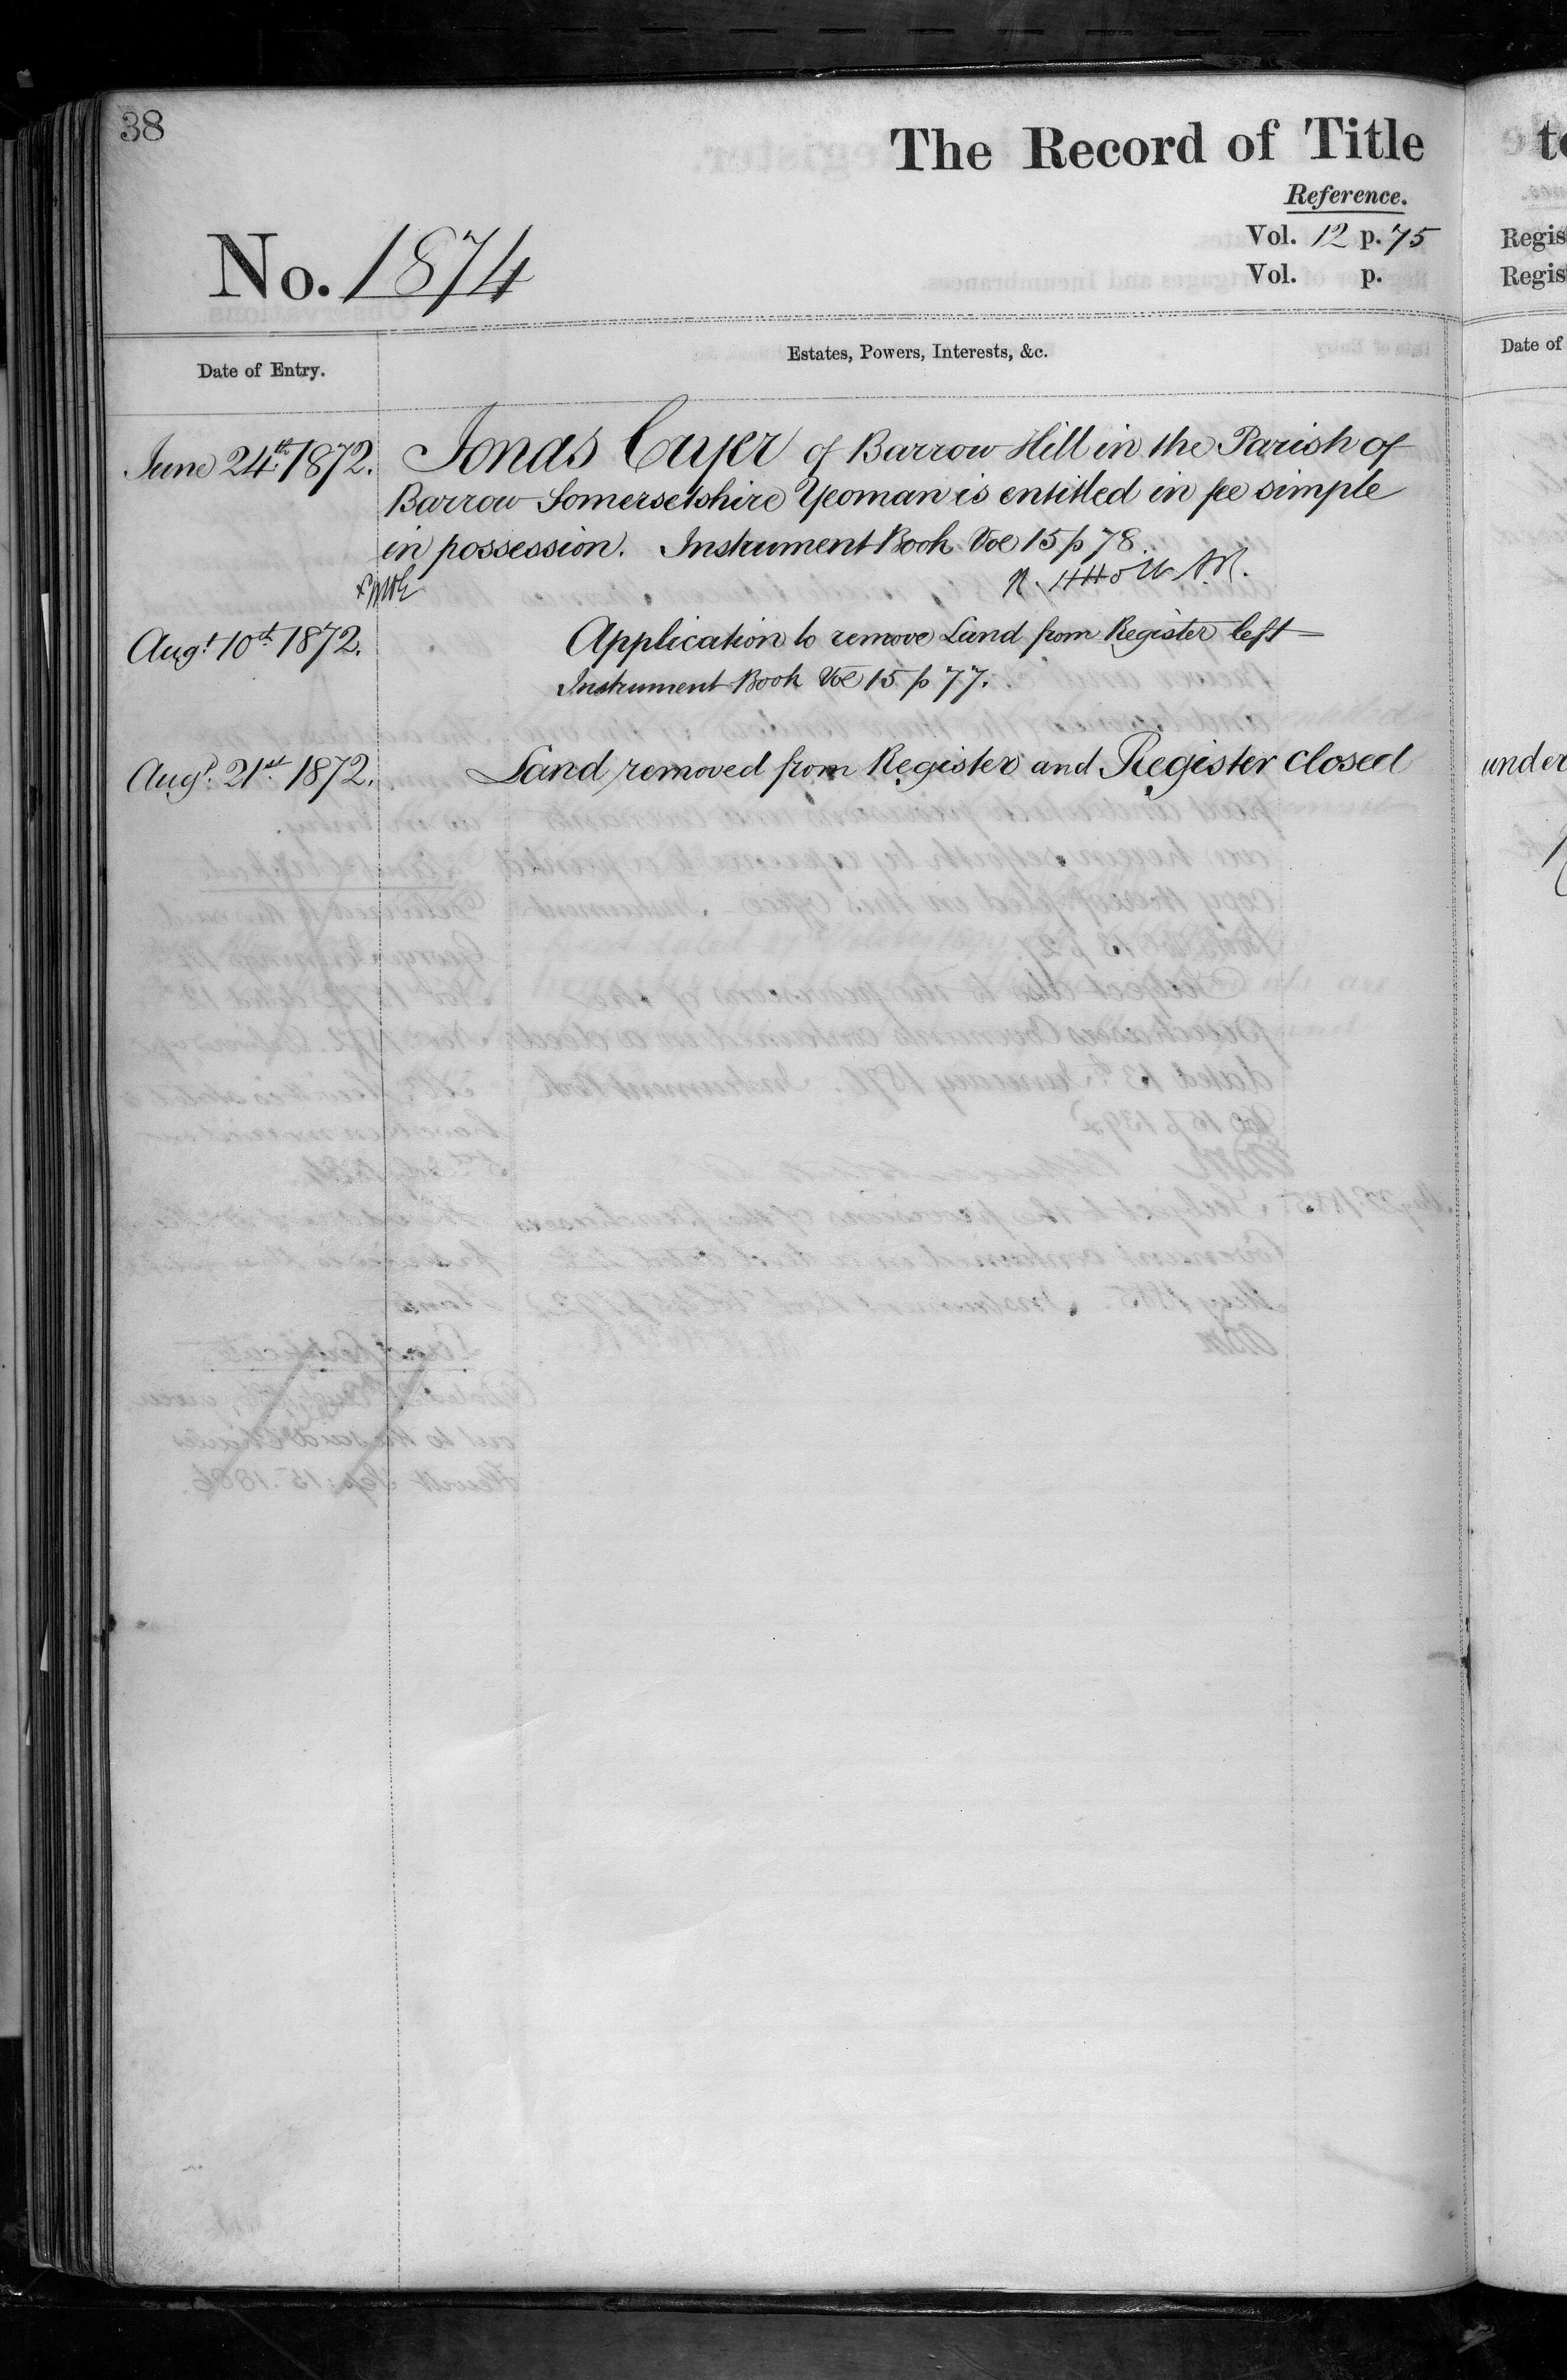 38
The Record of Title
Reference.
Vol. 12 p. 75
No. 1874
Vol. p.
Date of Entry.
Estates, Powers, Interests, &c.
June 24th 1872. Jonas Cuyer of Barrow Hill in the Parish of
Barrow Somersetshire Yeoman is entitled in fee simple
in possession. Instrument Book Vol 15 p 78
Augt. 10th 1872. Application to remove Land from Register left
Instrument Book Vol 15 p 77.
Augt. 21st 1872. Land removed from Register and Register closed
to
Regis
Regis
Date of
under